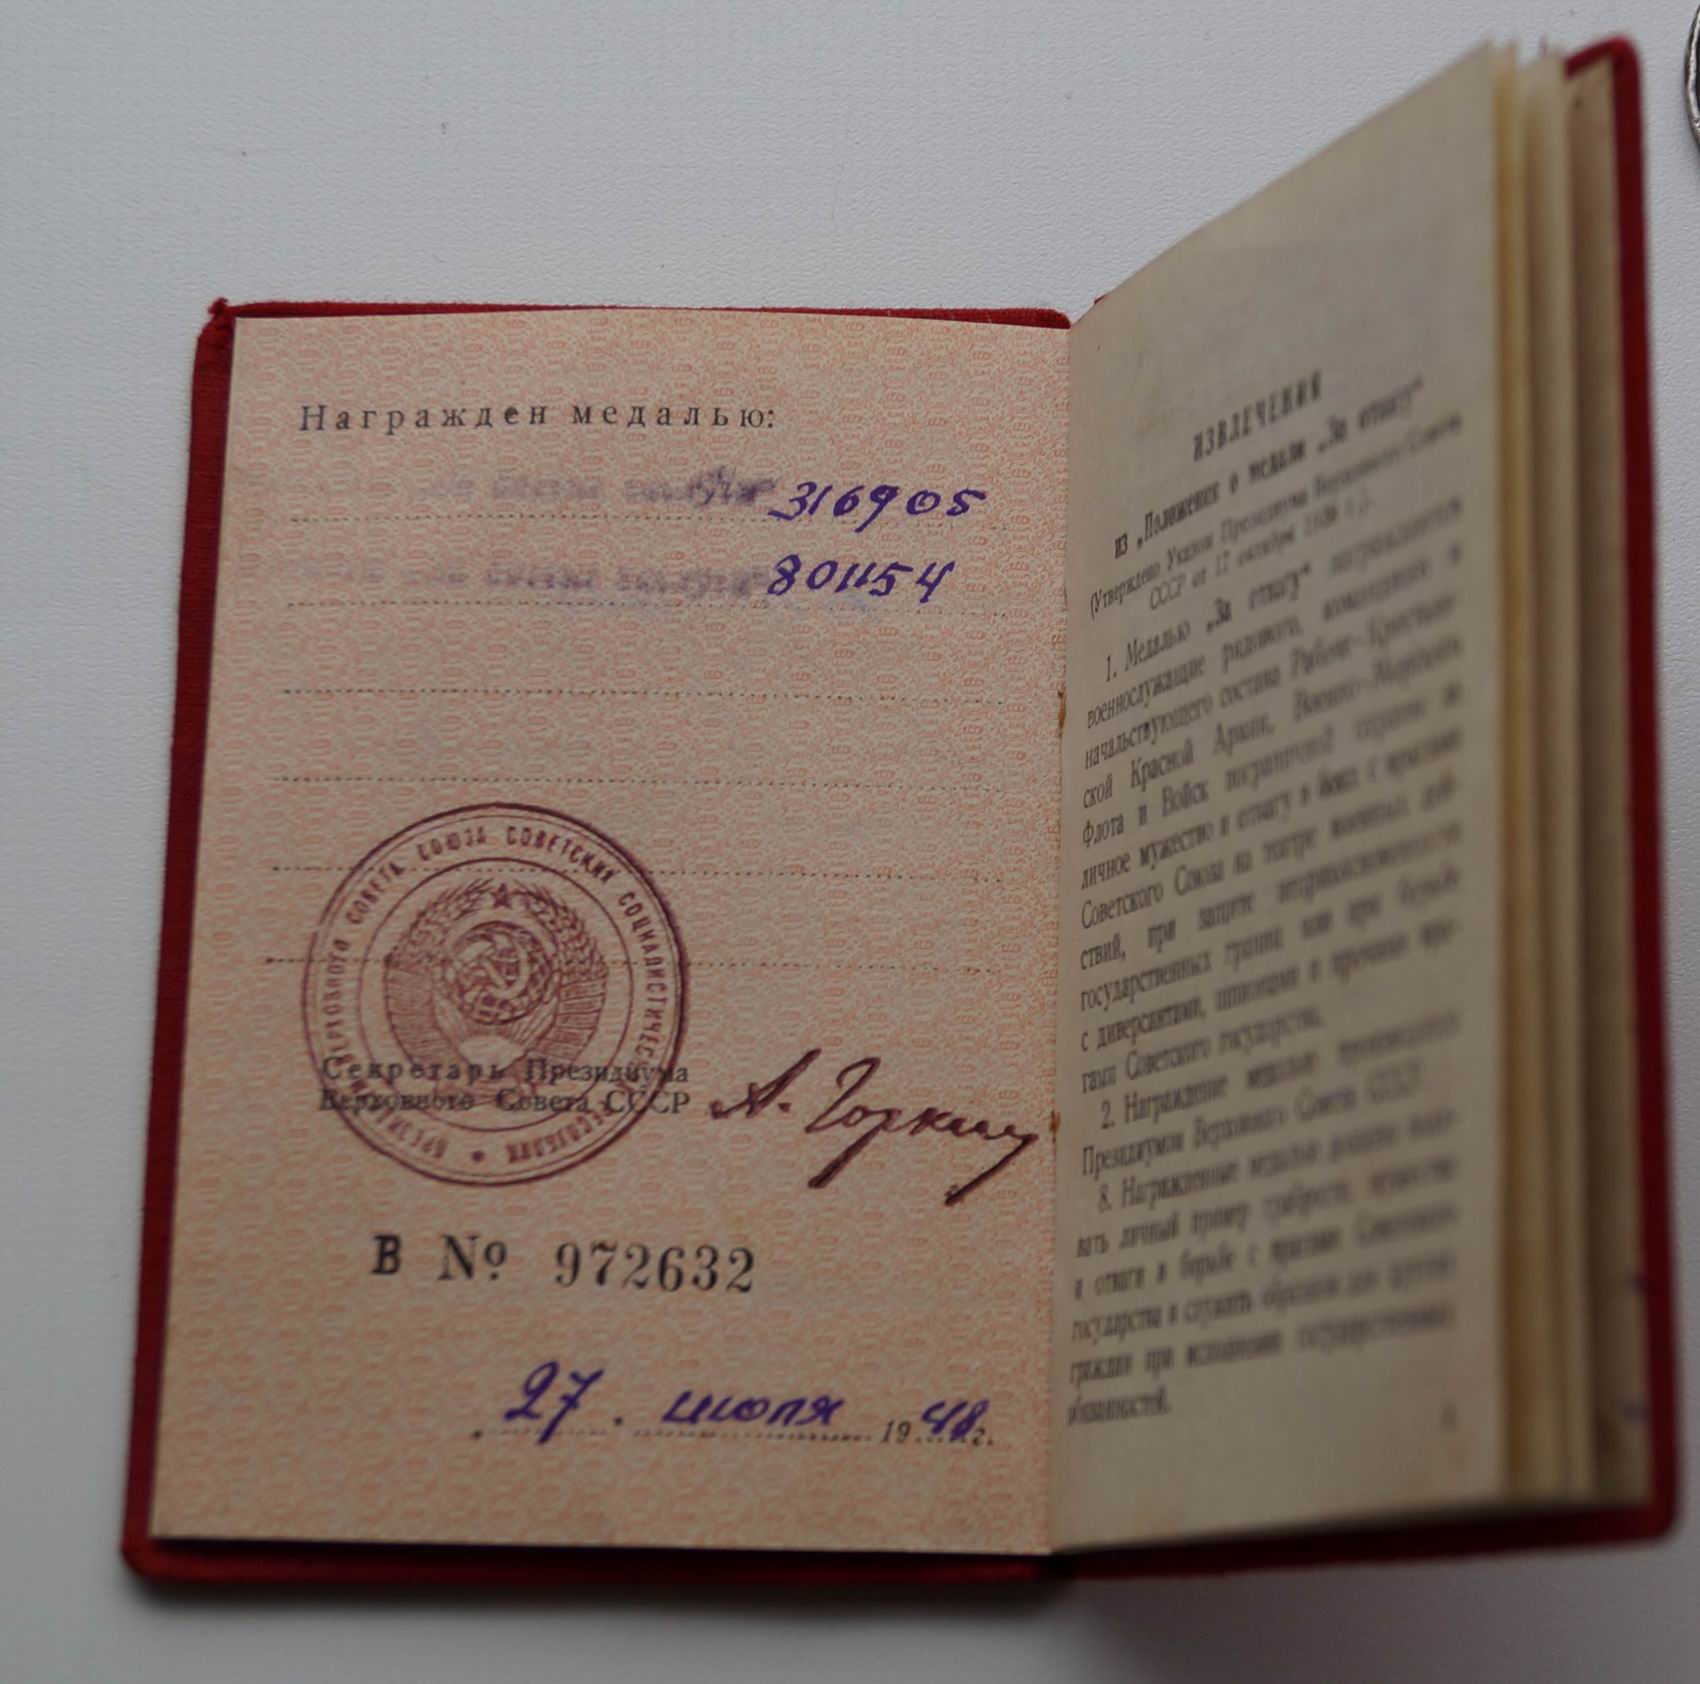 Награжден медалью:
316905
801154
ПРЕЗИДИУМ ВЕРХОВНОГО СОВЕТА СОЮЗА СОВЕТСКИХ СОЦИАЛИСТИЧЕСКИХ РЕСПУБЛИК
Секретарь Президиума
Верховного Совета СССР А. Горкин
В № 972632
„27" июля 1948 г.
ИЗВЛЕЧЕНИЯ
из „Положения о медали „За отвагу"
(Утверждено Указом Президиума Верховного Совета
СССР от 17 октября 1938 г.).
1. Медалью „За отвагу" награждаются
военнослужащие рядового, командного и
начальствующего состава Рабоче-Крестьян-
ской Красной Армии, Военно-Морского
Флота и Войск пограничной охраны за
личное мужество и отвагу в боях с врагами
Советского Союза на театре военных дей-
ствий, при защите неприкосновенности
государственных границ или при борьбе
с диверсантами, шпионами и прочими вра-
гами Советского государства.
2. Награждение медалью производится
Президиумом Верховного Совета СССР.
8. Награжденные медалью должны пода-
вать личный пример храбрости, мужества
и отваги в борьбе с врагами Советского
государства и служить образцом для других
граждан при исполнении государственных
обязанностей.